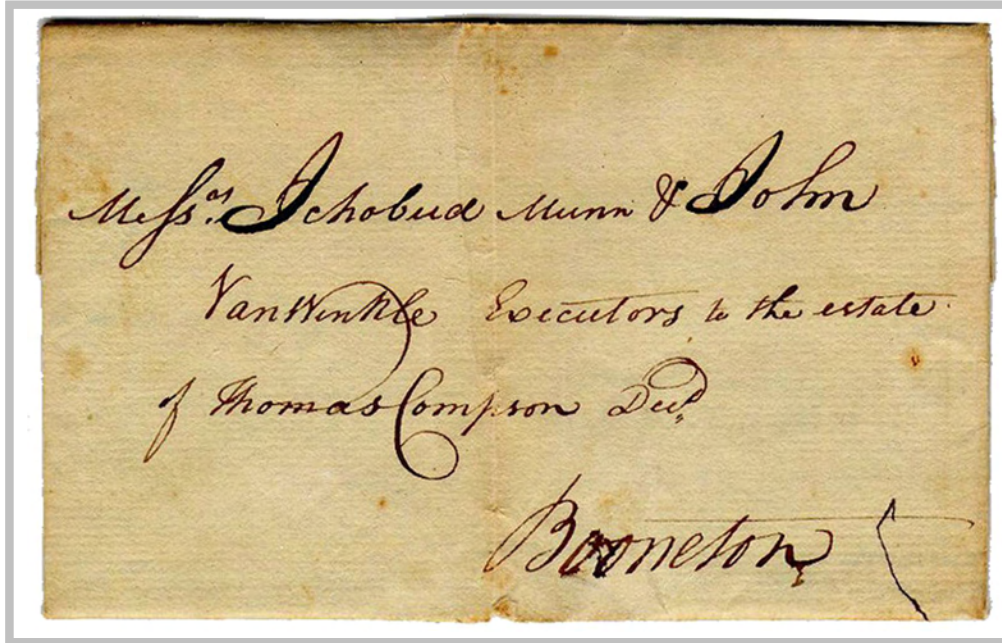 Messrs. Ichobud Munn & John
VanWinkle Executors to the estate
of Thomas Compson Decd.
Booneton